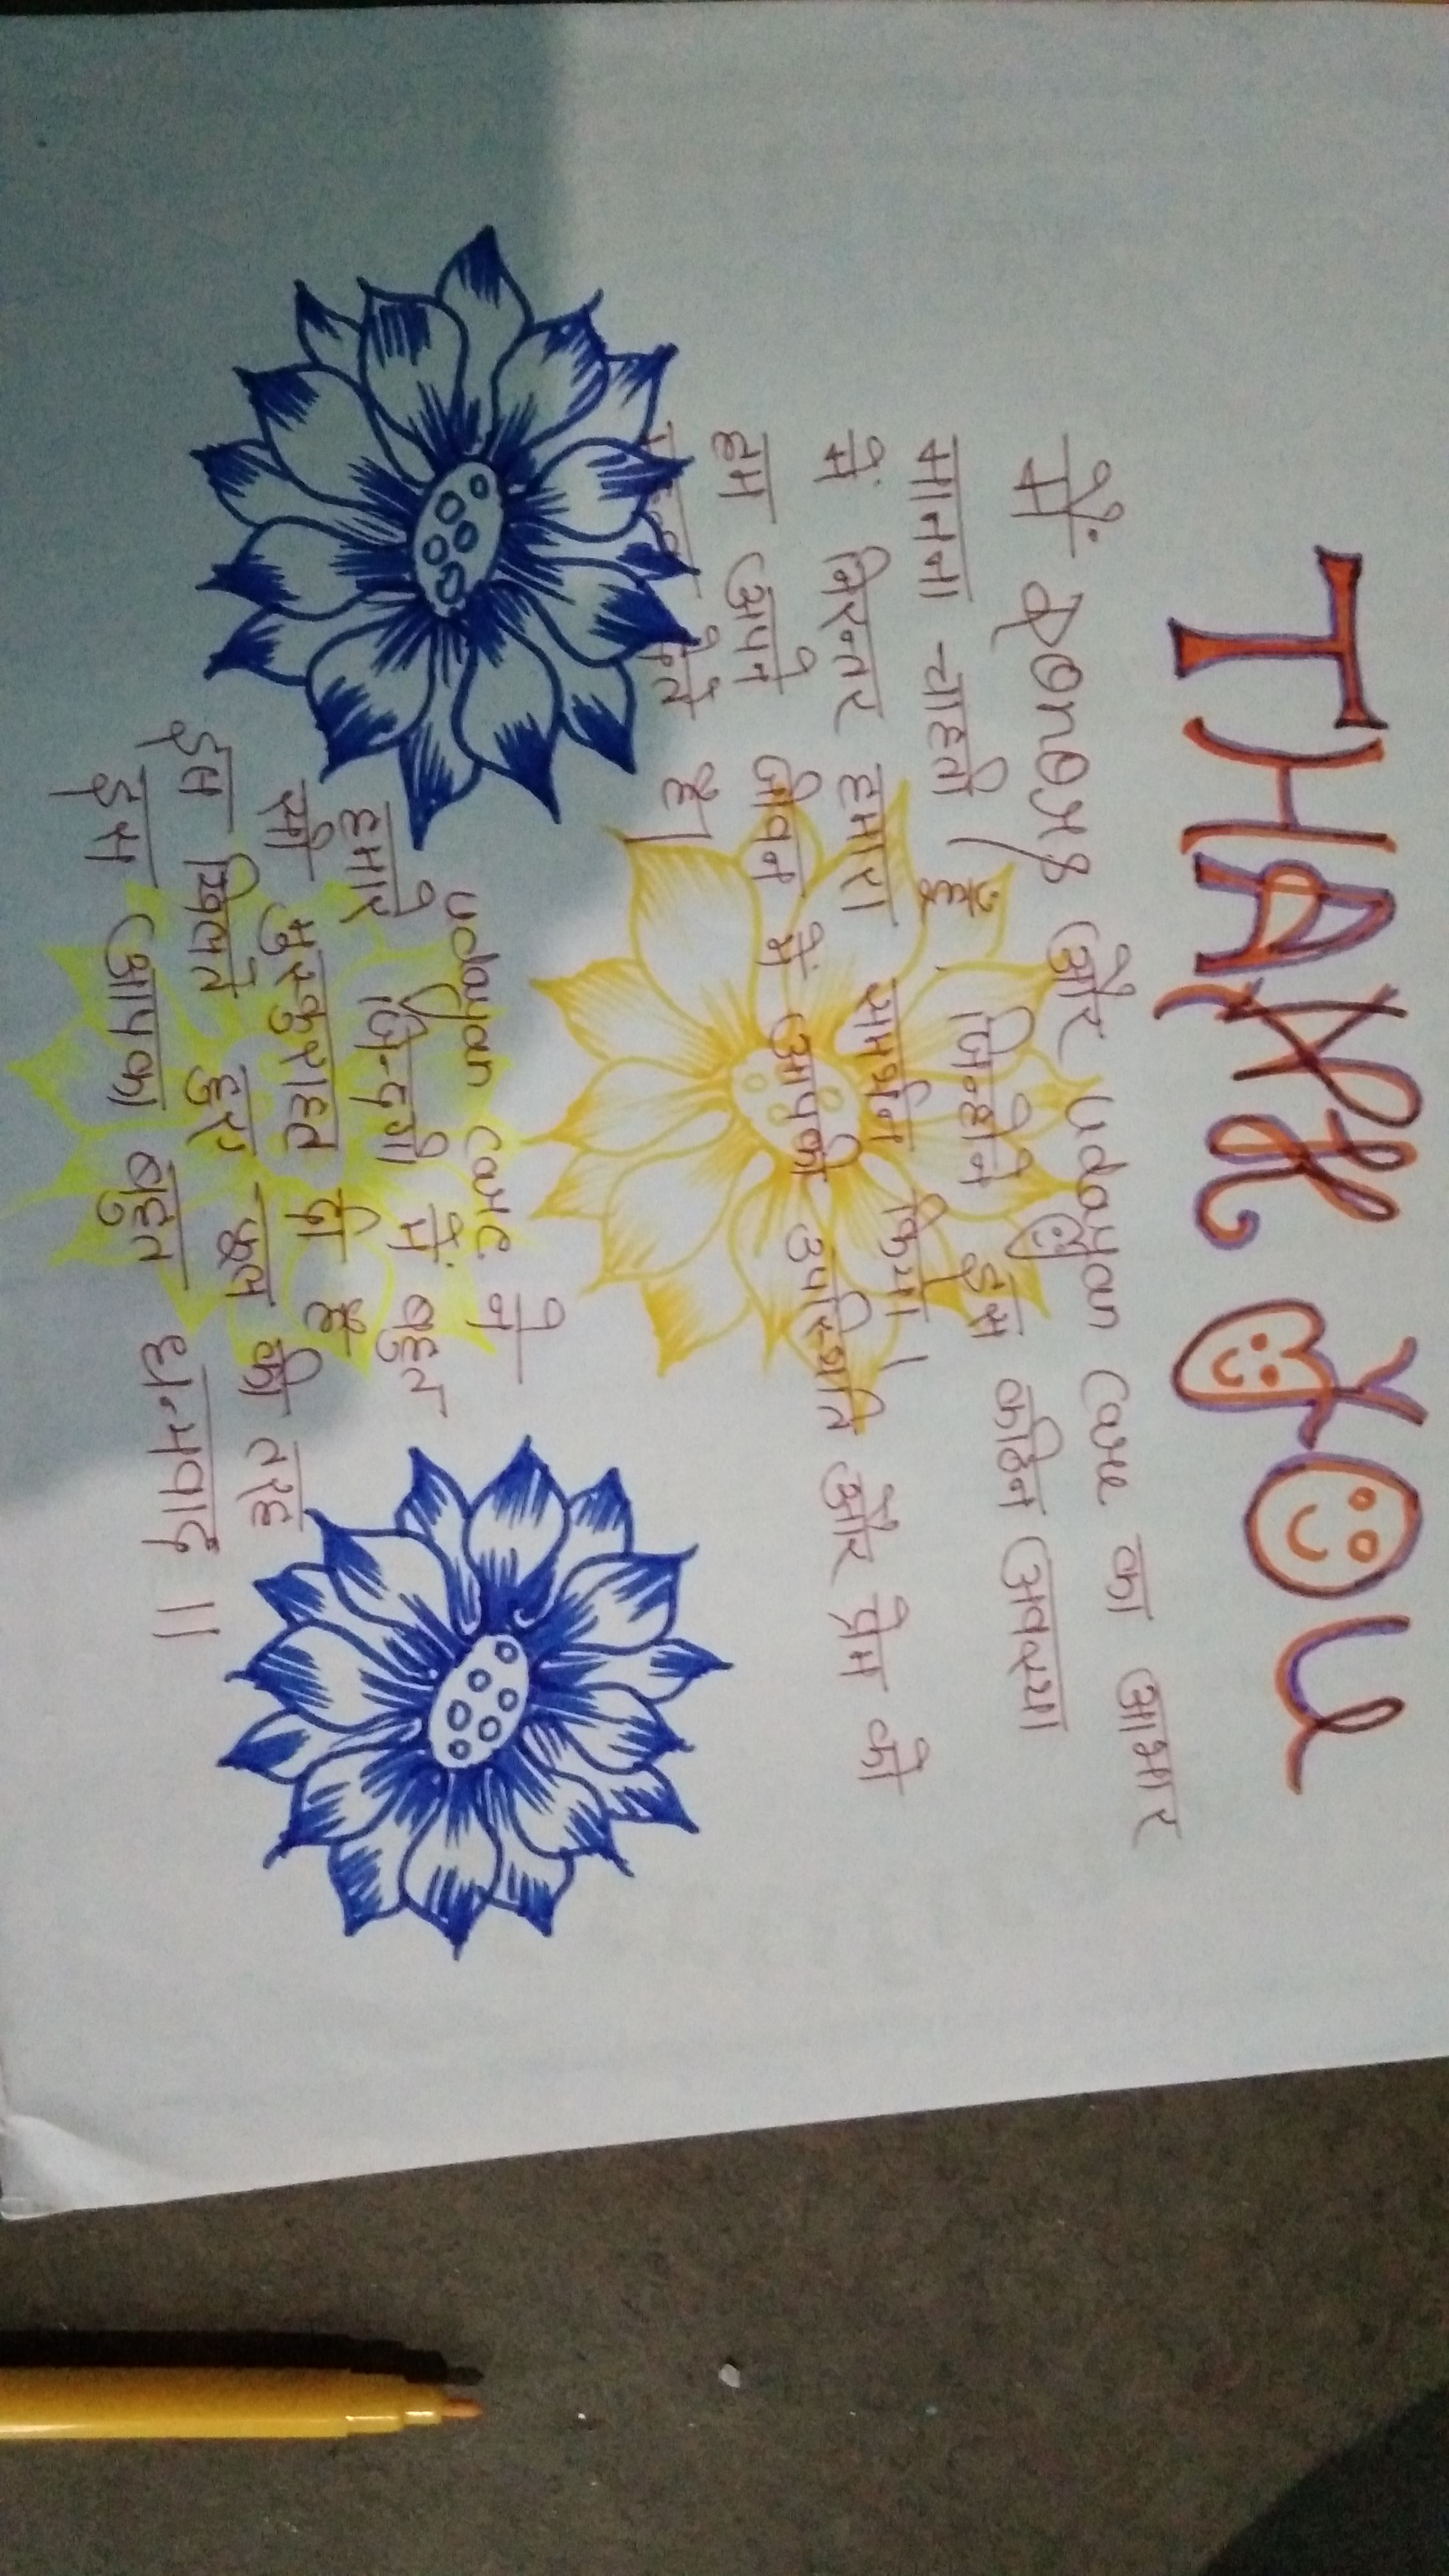 THANK YOU
मैं Donors और udayan care का आभार
मानना चाहती हूँ, जिन्होंने इस कठिन अवस्था
में निरन्तर हमारा समर्थन किया।
हम अपने जीवन में आपकी उपस्थिति और प्रेम को
है।
udayan care ने
हमारे जिन्दगी में बहुत
सी मुस्कुराहत दी है
इस खिलते हुए फूल की तरह
हम आपका बहुत धन्यवाद ||